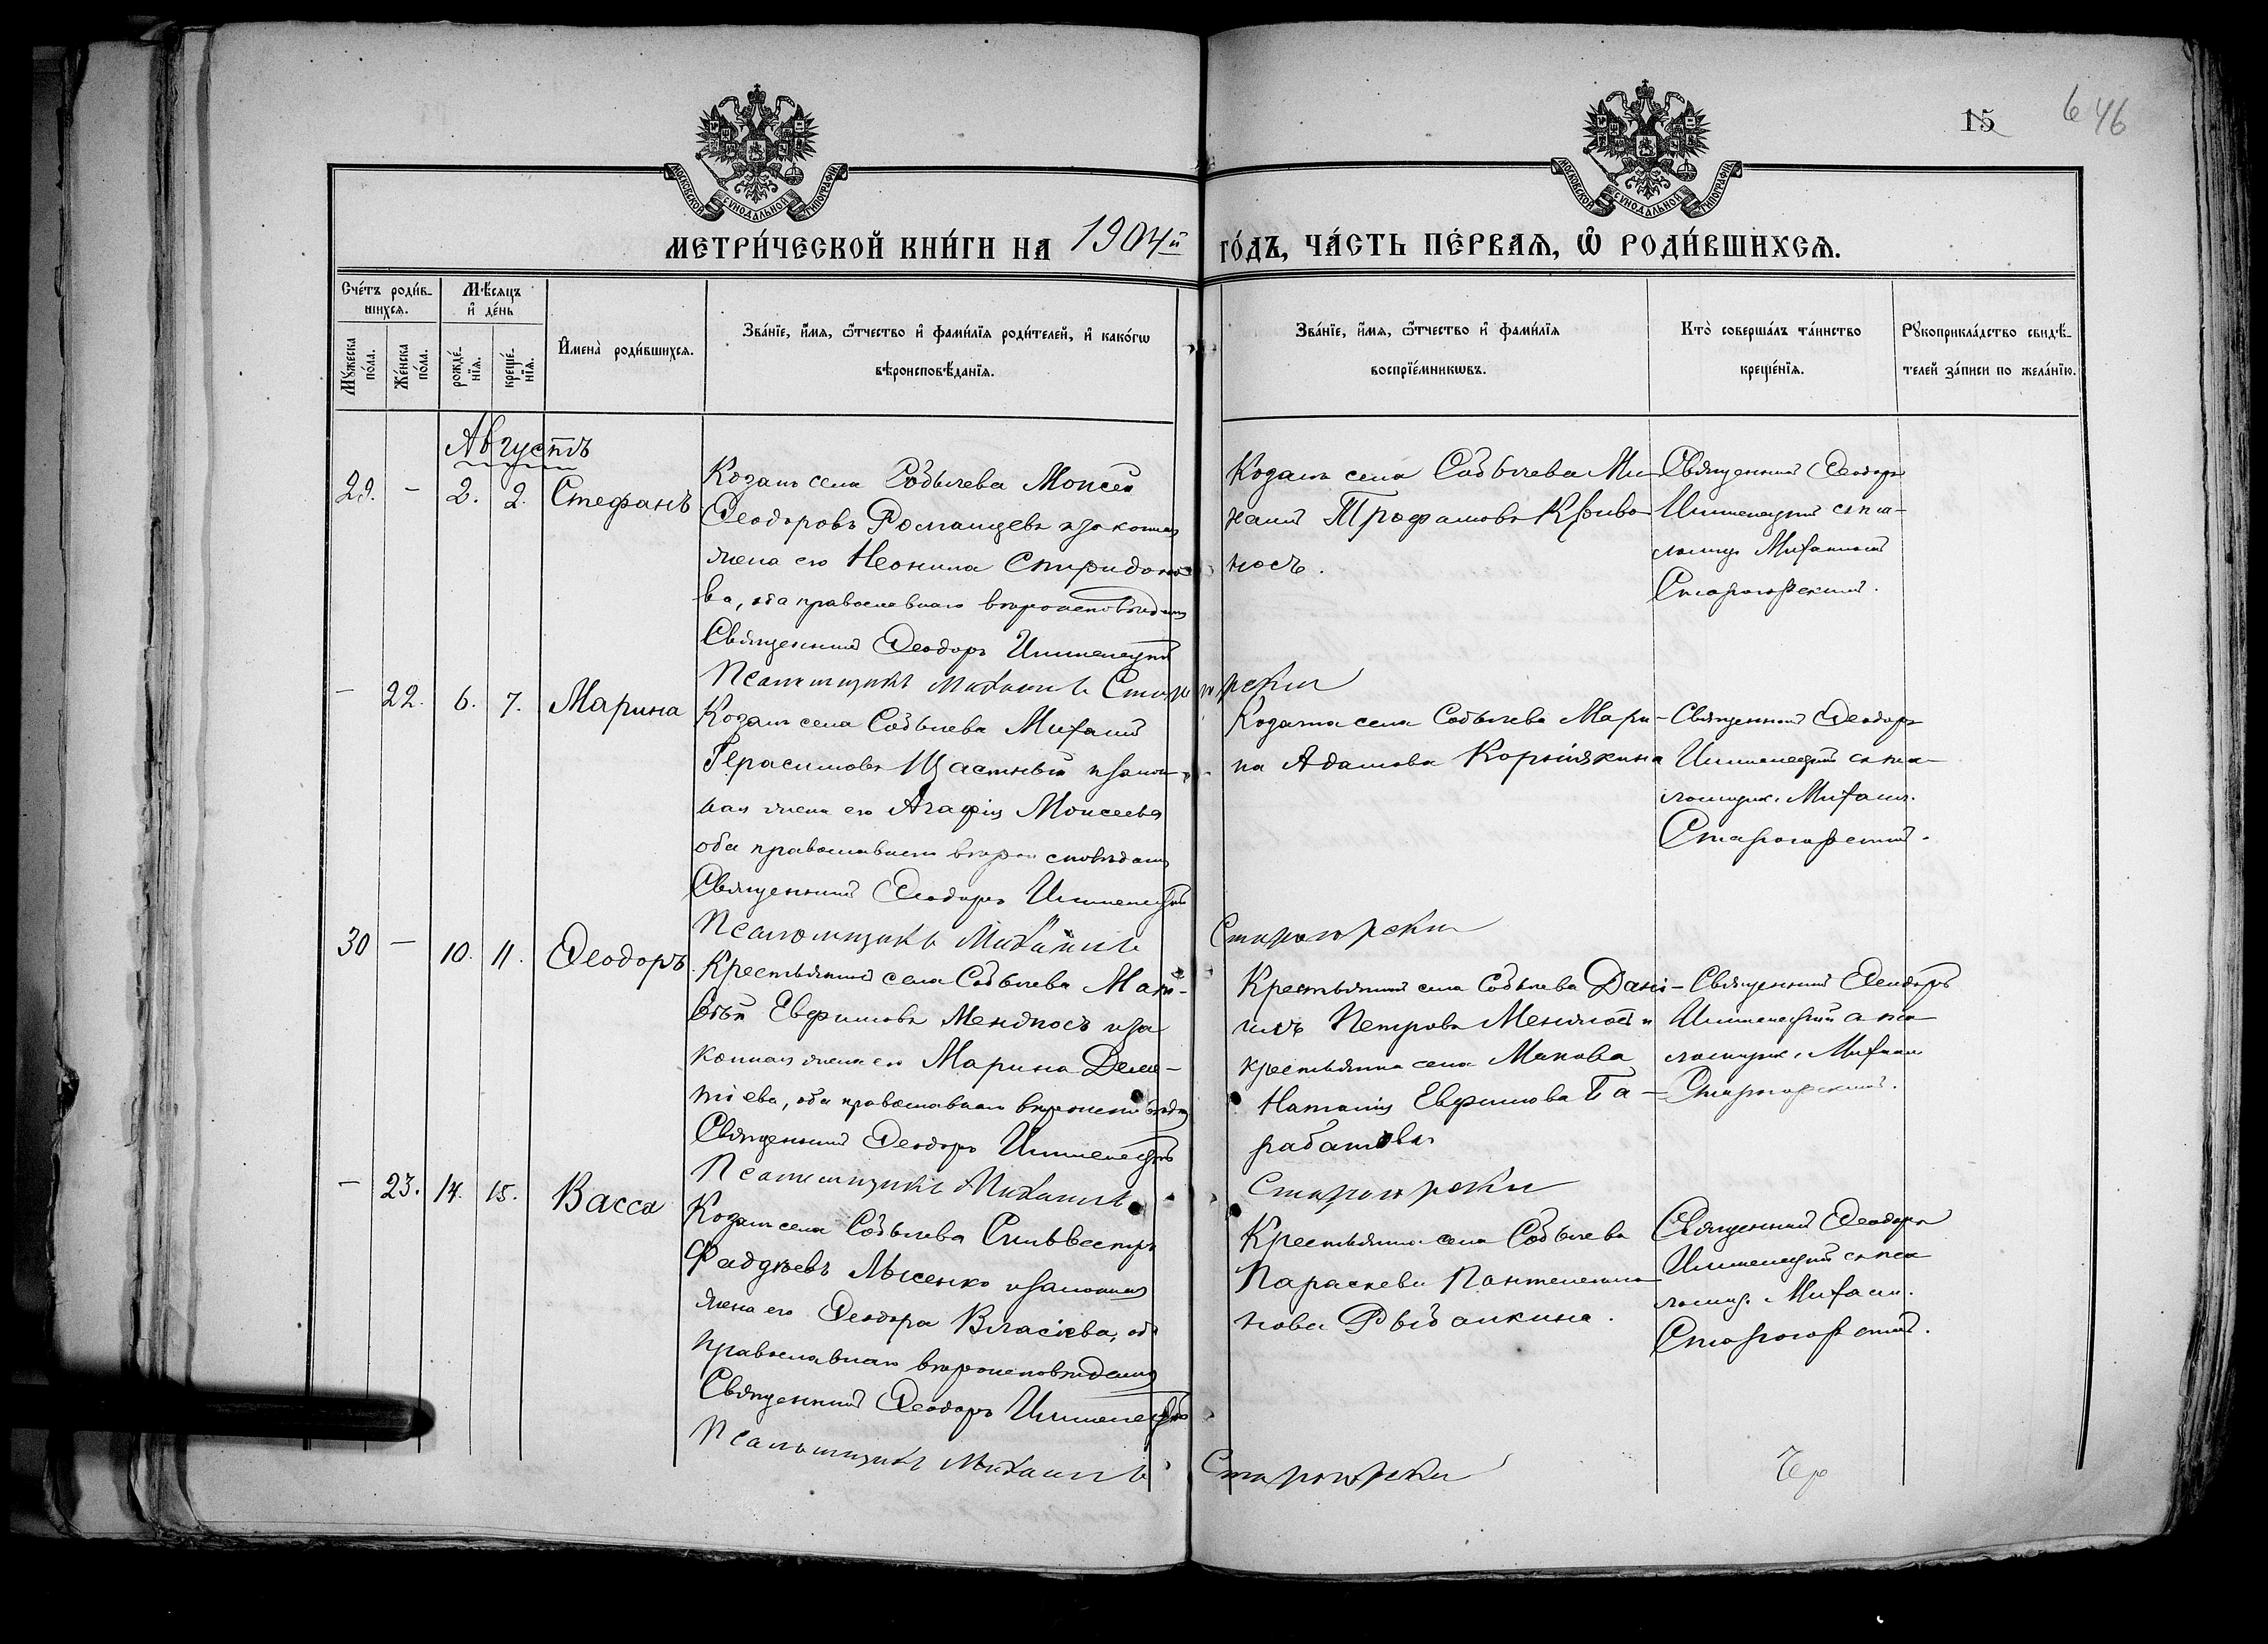 15
646
МОСКОВСКОЙ СУНОДАЛЬНОЙ ТИПОГРАФІИ
МОСКОВСКОЙ СУНОДАЛЬНОЙ ТИПОГРАФІИ
МЕТРИ́ЧЕСКОЙ КНИ́ГИ НА 1904й ГО́ДЪ, ЧА́СТЬ ПЕ́РВАѦ, Ѽ РОДИ́ВШИХСѦ.
Сче́тъ роди́в-
шихсѧ.
Мꙋ́жеска по́ла.
Же́нска по́ла.
Мѣ́сѧцъ и҆ де́нь
рожде́-нїѧ.
креще́-нїѧ.
И҆мена̀ роди́вшихсѧ.
Зва́нїе, и҆́мѧ, ѻ҆́тчество и҆ фами́лїѧ роди́телей, и҆ како́гѡ
вѣроисповѣ́данїѧ.
Зва́нїе, и҆́мѧ, ѻ҆́тчество и҆ фами́лїѧ
воспрїе́мникѡвъ.
Кто̀ соверша́лъ та́инство
креще́нїѧ.
Рꙋкоприкла́дство свидѣ́-
телей за́писи по жела́нїю.
Августъ
29. - 2. 2. Стефанъ
Козакъ села Собычева Моисей
Ѳеодоровъ Романцевъ и законная
жена его Неонила Спиридоно-
ва, оба православнаго вѣроисповѣданія
Священникъ Ѳеодоръ
Псаломщикъ Михаилъ Старогорскій
Козакъ села Собычева Ми-
хаилъ Трофимовъ Криво-
носъ.
Священникъ Ѳеодоръ
с пса-
ломщ. Михаиломъ
Старогорскимъ.
- 22. 6. 7. Марина
Козакъ села Собычева Михаилъ
Герасимовъ Щастный и закон-
ная жена его Агафія Моисеева
оба православнаго вѣроисповѣданія
Священникъ Ѳеодоръ
Псаломщикъ Михаилъ Старогорскій
Козачка села Собычева Мари-
на Адамова Корнійкина
Священникъ Ѳеодоръ
с пса-
ломщик. Михаил.
Старогорскимъ.
30 - 10. 11. Ѳеодоръ
Крестьянинъ села Собычева Мат-
вѣй Евфимовъ Мендюсъ и за-
конная жена его Марина Демен-
тіева, оба православнаго вѣроисповѣд.
Священникъ Ѳеодоръ
Псаломщикъ Михаилъ Старогорскій
Крестьянинъ села Собычева Дані-
илъ Петровъ и
крестьянка села Макова
Наталія Евфимова Та-
рабатова
Священникъ Ѳеодоръ
с пса-
ломщик. Михаил.
Старогорскимъ.
- 23. 14. 15. Васса
Козакъ села Собычева Сильвестръ
Фаддѣевъ Лысенко и законная
жена его Ѳеодора Власіева, оба
православнаго вѣроисповѣданія
Священникъ Ѳеодоръ
Псаломщикъ Михаилъ Старогорскій
Крестьянка села Собычева
Параскева Пантелеимо-
нова Рыбалкина.
Священникъ Ѳеодоръ
с пса-
ломщ. Михаил.
Старогорскимъ.